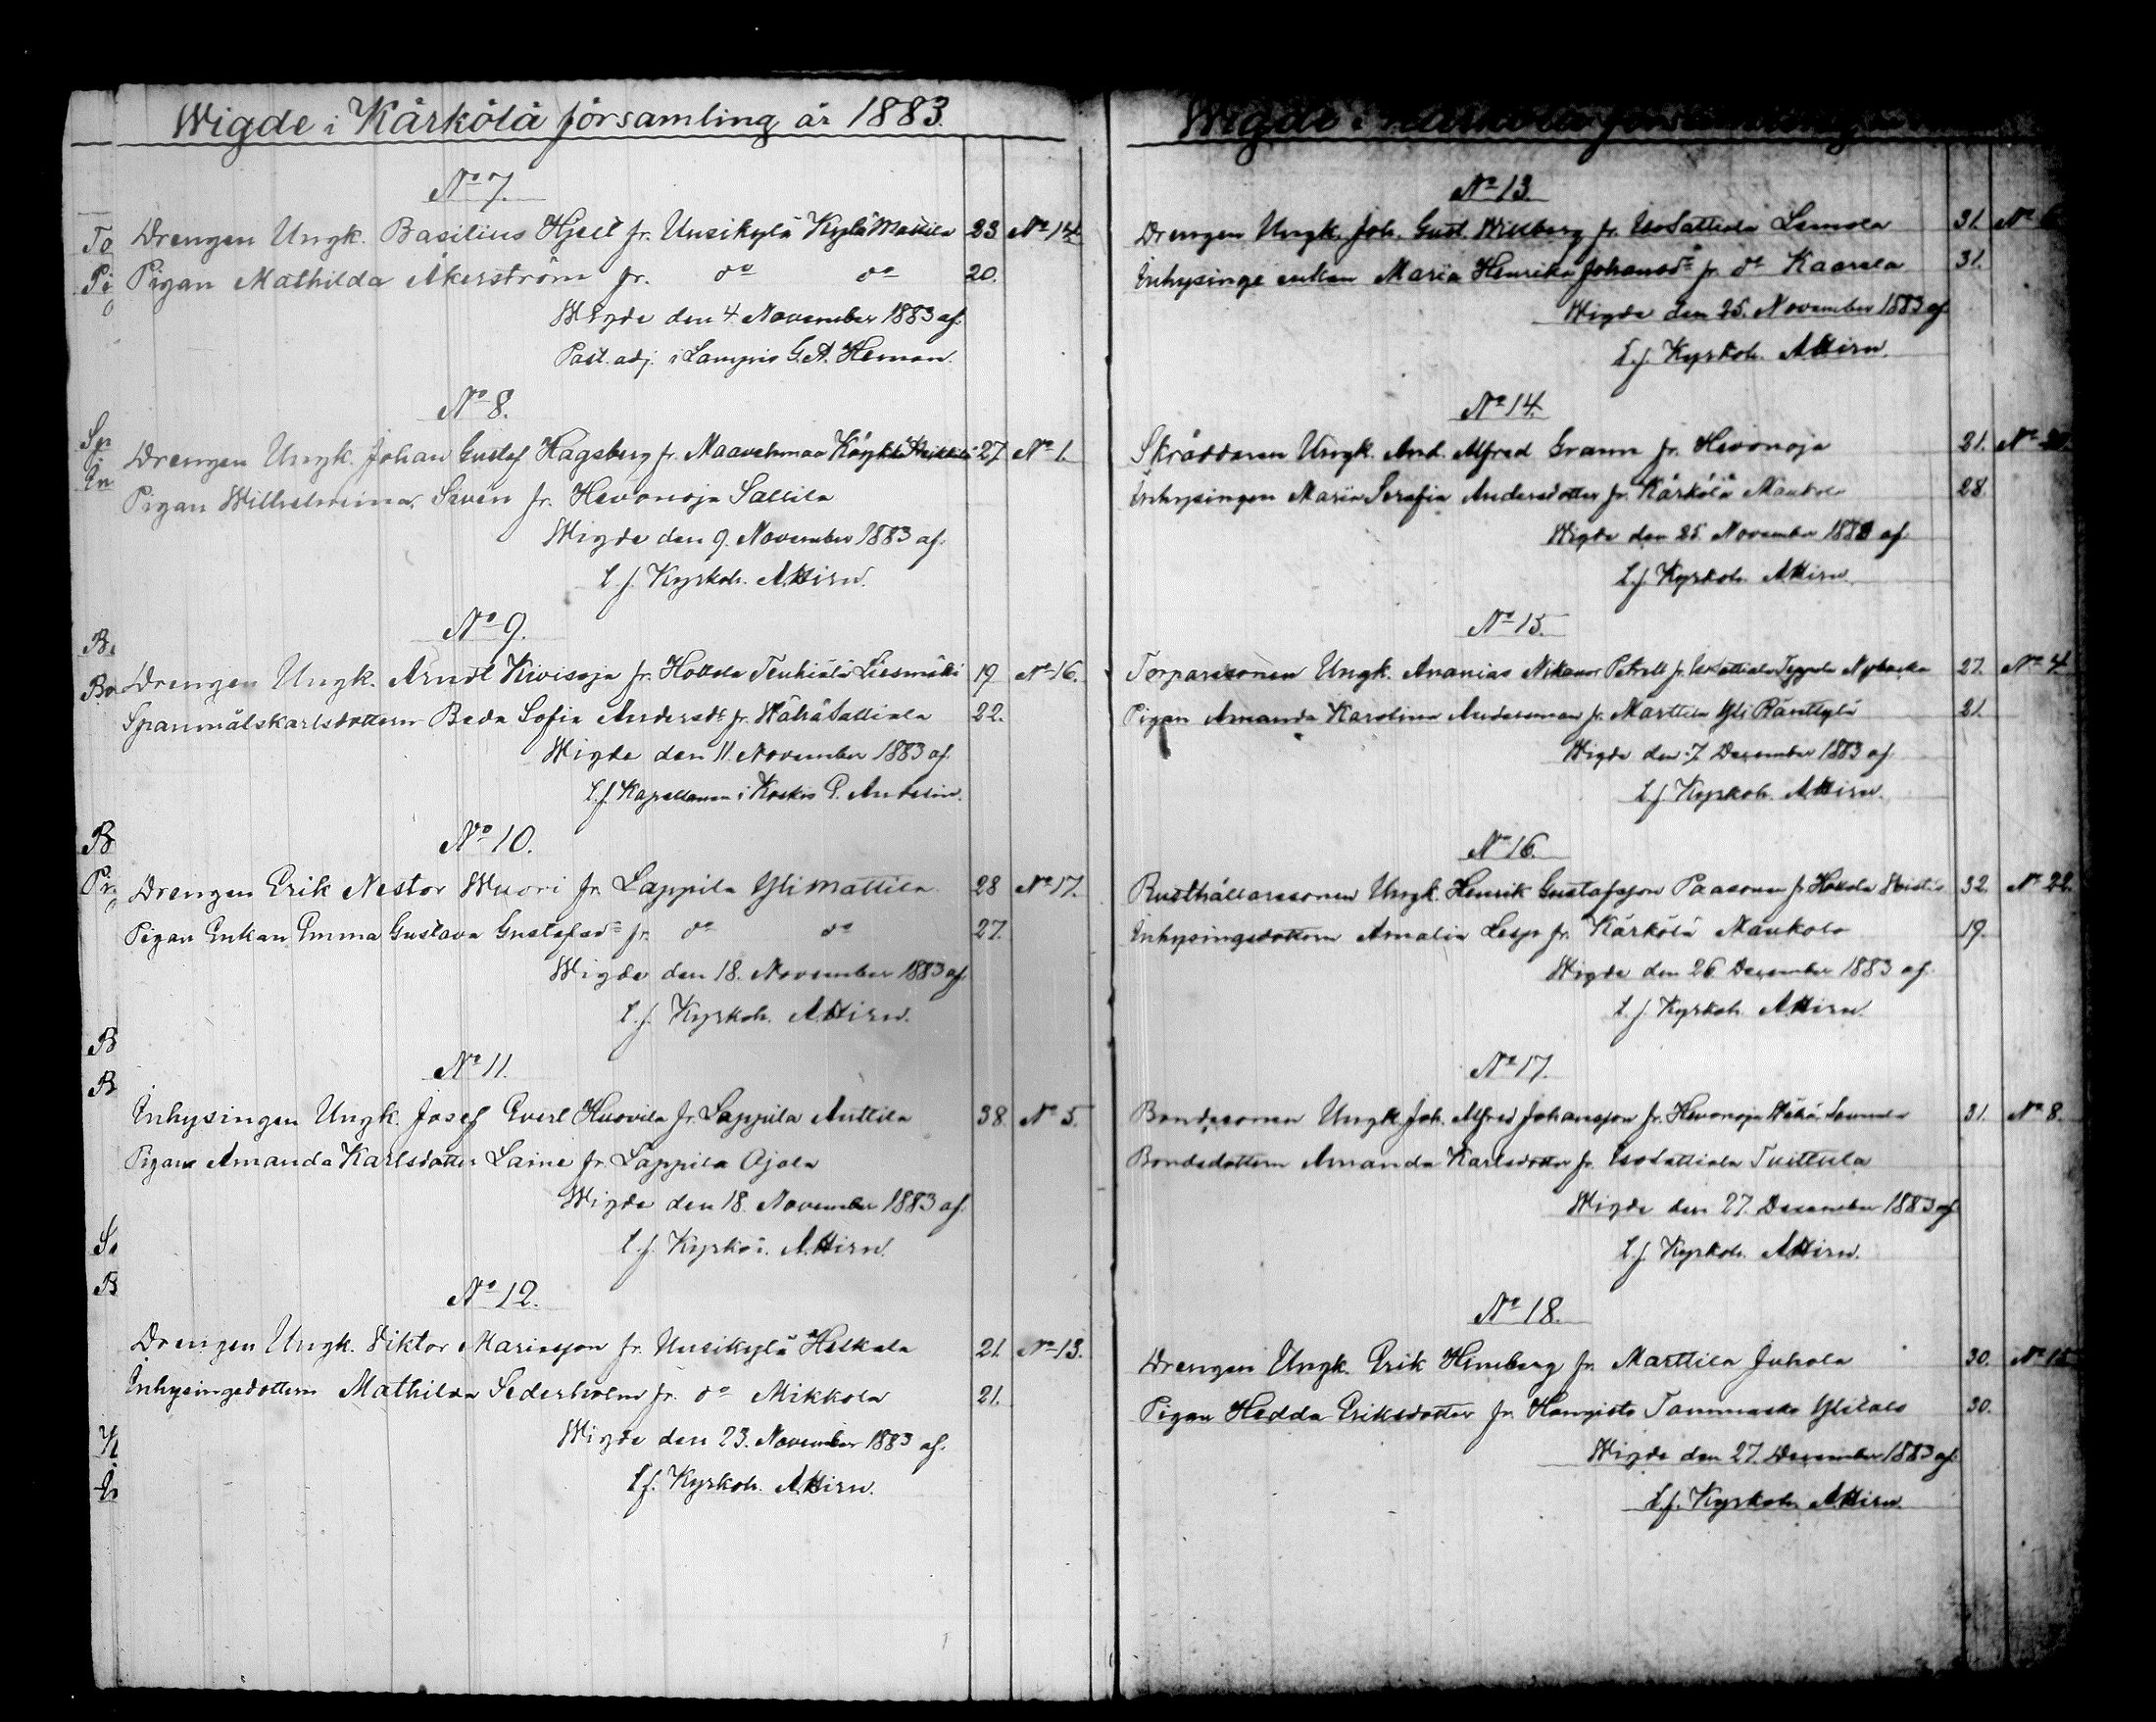 Wigde i Kärkölä församling år 1883.
No 7.
Drengen Ungk. Basilius Hjelt fr. Uusikylä Kylä Mattila 23 No 14.
Pigan Mathilda Åkerström fr. do do 20.
Wigde den 4 November 1883 af.
Past. adj. i Lampis G. A. Heman.
No 8.
Drengen Ungk. Johan Gustaf Hagsberg fr. Maavehmaa Köykkä 27. No 1.
Pigan Wilhelmina Sevén fr. Hevonoja Sallila
Wigde den 9. November 1883 af.
t. f. Kyrkoh. A. Hirn.
No 9.
Drengen Ungk. Arndt Kivisoja fr. Hollola Tenhiälä Liesmäki 19 No 16.
Spanmålskarlsdottern Beda Sofia Andersdr fr. Wähä Sattiala 22.
Wigde den 11. November 1883 af.
t. f. Kapellanen i Koskis Andelin.
No 10.
Drengen Erik Nestor Wuori fr. Lappila Yli Mattila 28 No 17.
Pigan Enkan Emma Gustava Gustafsdr fr. do do 27.
Wigde den 18. November 1883 af.
t. f. Kyrkoh. A. Hirn.
No 11.
Inhysingen Ungk. Josef Evert Huovila fr. Lappila Anttila 38. No 5.
Pigan Amanda Karlsdotter Laine fr. Lappila Ojala
Wigde den 18. November 1883 af.
t. f. Kyrkoh. A. Hirn.
No 12.
Drengen Ungk. Viktor Mariasson fr. Uusikylä Helkala 21. No 13.
Inhysingsdottern Mathilda Sederholm fr. do Mikkola 21.
Wigde den 23. November 1883 af.
t. f. Kyrkoh. A. Hirn.
Wigde i Kärkölä församling
No 13.
Drengen Ungk. Joh. Gust. Willberg fr. Iso Sattiala Lemola 31. No 6
Inhysinge enkan Maria Henrika Johansdr fr. do Kaarela 31.
Wigde den 25. November 1883 af.
t. f. Kyrkoh. A. Hirn.
No 14.
Skräddaren Ungk. And. Alfred Grann fr. Hevonoja 21. No
Inhysingen Maria Serafia Andersdotter fr. Kärkölä Maukola 28.
Wigde den 25. November 1883 af.
t. f. Kyrkoh. A. Hirn.
No 15.
Torparesonen Ungk. Ananias Nikanor Petrell fr. Iso Sattiala Seppälä Nybacka 27. No 4.
Pigan Amanda Karolina Andersman fr. Marttila Yli Päntsylä 21.
Wigde den 7. December 1883 af.
t. f. Kyrkoh. A. Hirn.
No 16.
Rusthållaressonen Ungk. Henrik Gustafsson Paasonen fr. Hollola 32. No 22.
Inhysingsdottern Amalia Lesp fr. Kärkölä Maukola 19.
Wigde den 26 December 1883 af.
t. f. Kyrkoh. A. Hirn.
No 17.
Bondesonen Ungk. Joh. Alfred Johansson fr. Hevonoja Wähä 31. No 8.
Bondedottern Amanda Karlsdotter fr. Iso Sattiala Tuittula
Wigde den 27. December 1883 af
t. f. Kyrkoh. A. Hirn.
No 18.
Drengen Ungk. Erik Himberg fr. Marttila Juhola 30. No 15
Pigan Hedda Eriksdotter fr. Hongisto Tommasko Ylitalo 30.
Wigde den 27. December 1883 af.
t. f. Kyrkoh. A. Hirn.